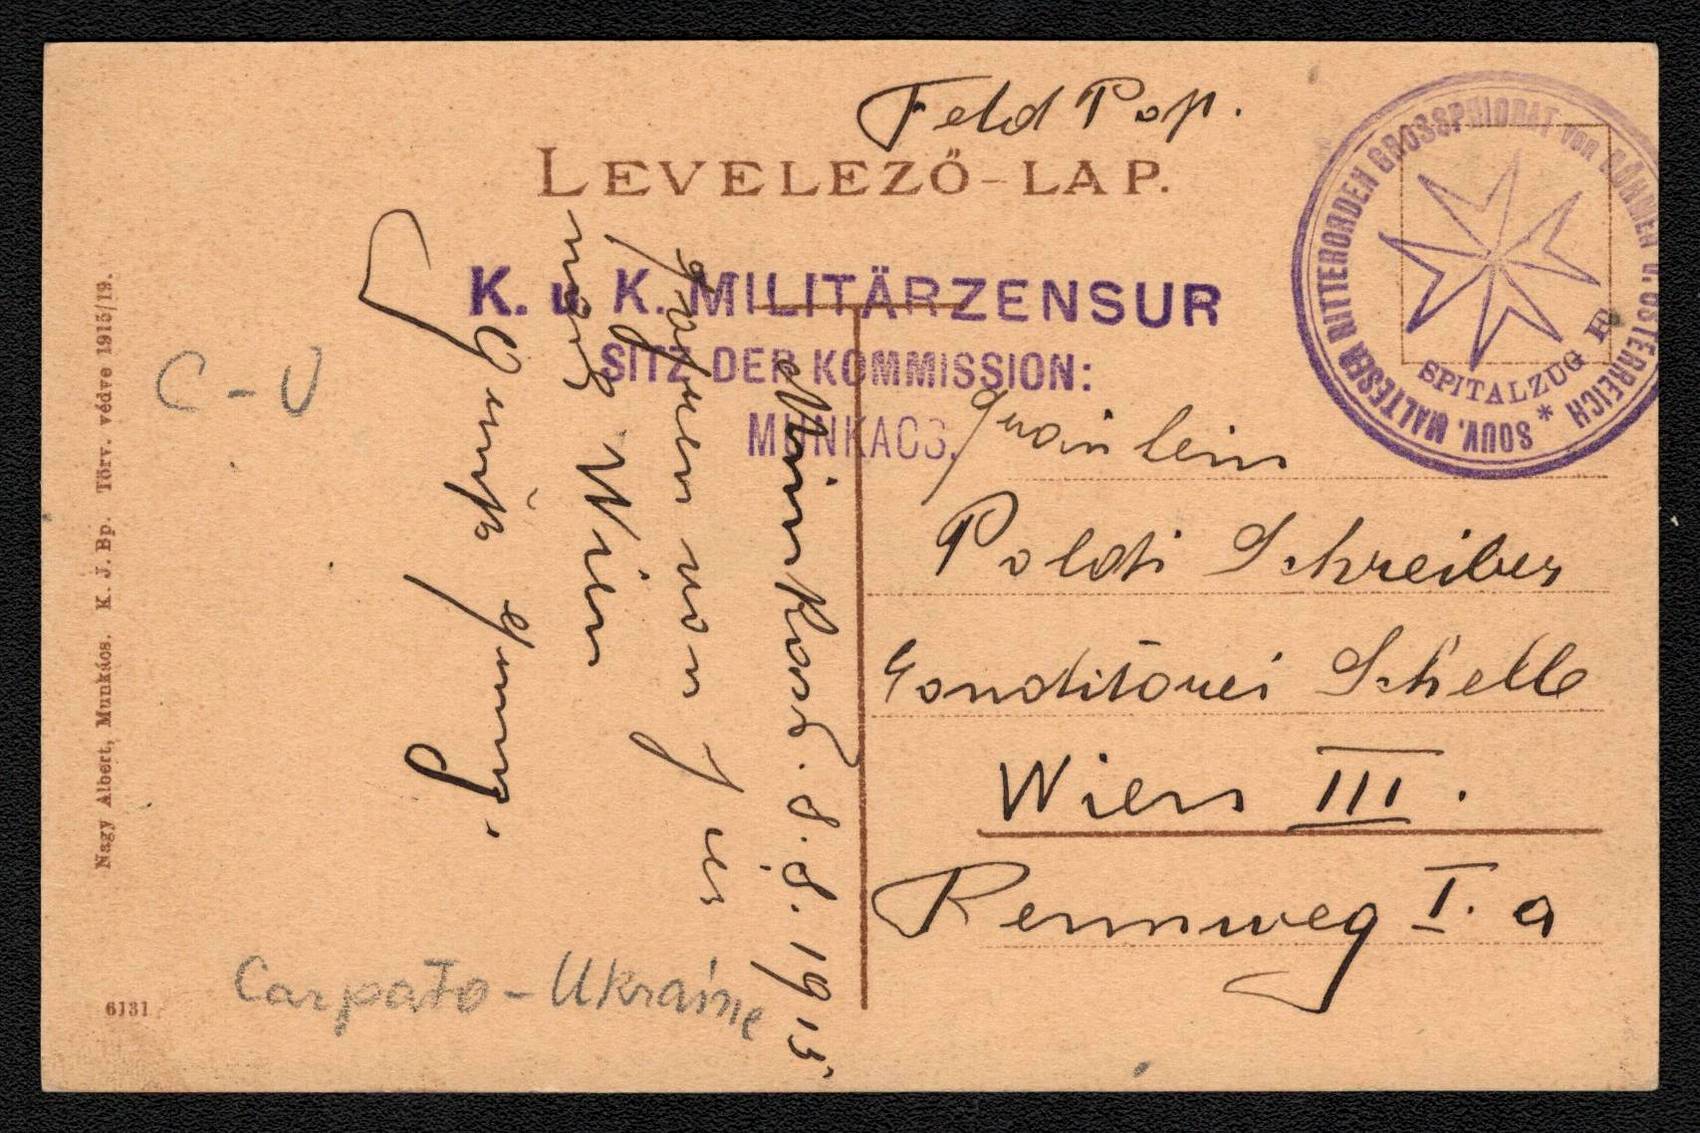 Feld Post.
LEVELEZŐ-LAP.
SOUV. MALTESER RITTERORDEN GROSSPRIORAT VON BÖHMEN U. ÖSTERREICH *
SPITALZUG E
K. u. K. MILITÄRZENSUR
SITZ DER KOMMISSION:
MUNKACS.
Fräulein
Poldi Schreiber
Conditorei Schelle
Wien III.
Rennweg I. a
Munkacs. 8. 8. 1915
fahren von
nach Wien
Gruß
C - U
Carpato - Ukraine
Nagy Albert, Munkács. K. J. Bp. Törv. védve 1915/19.
6131